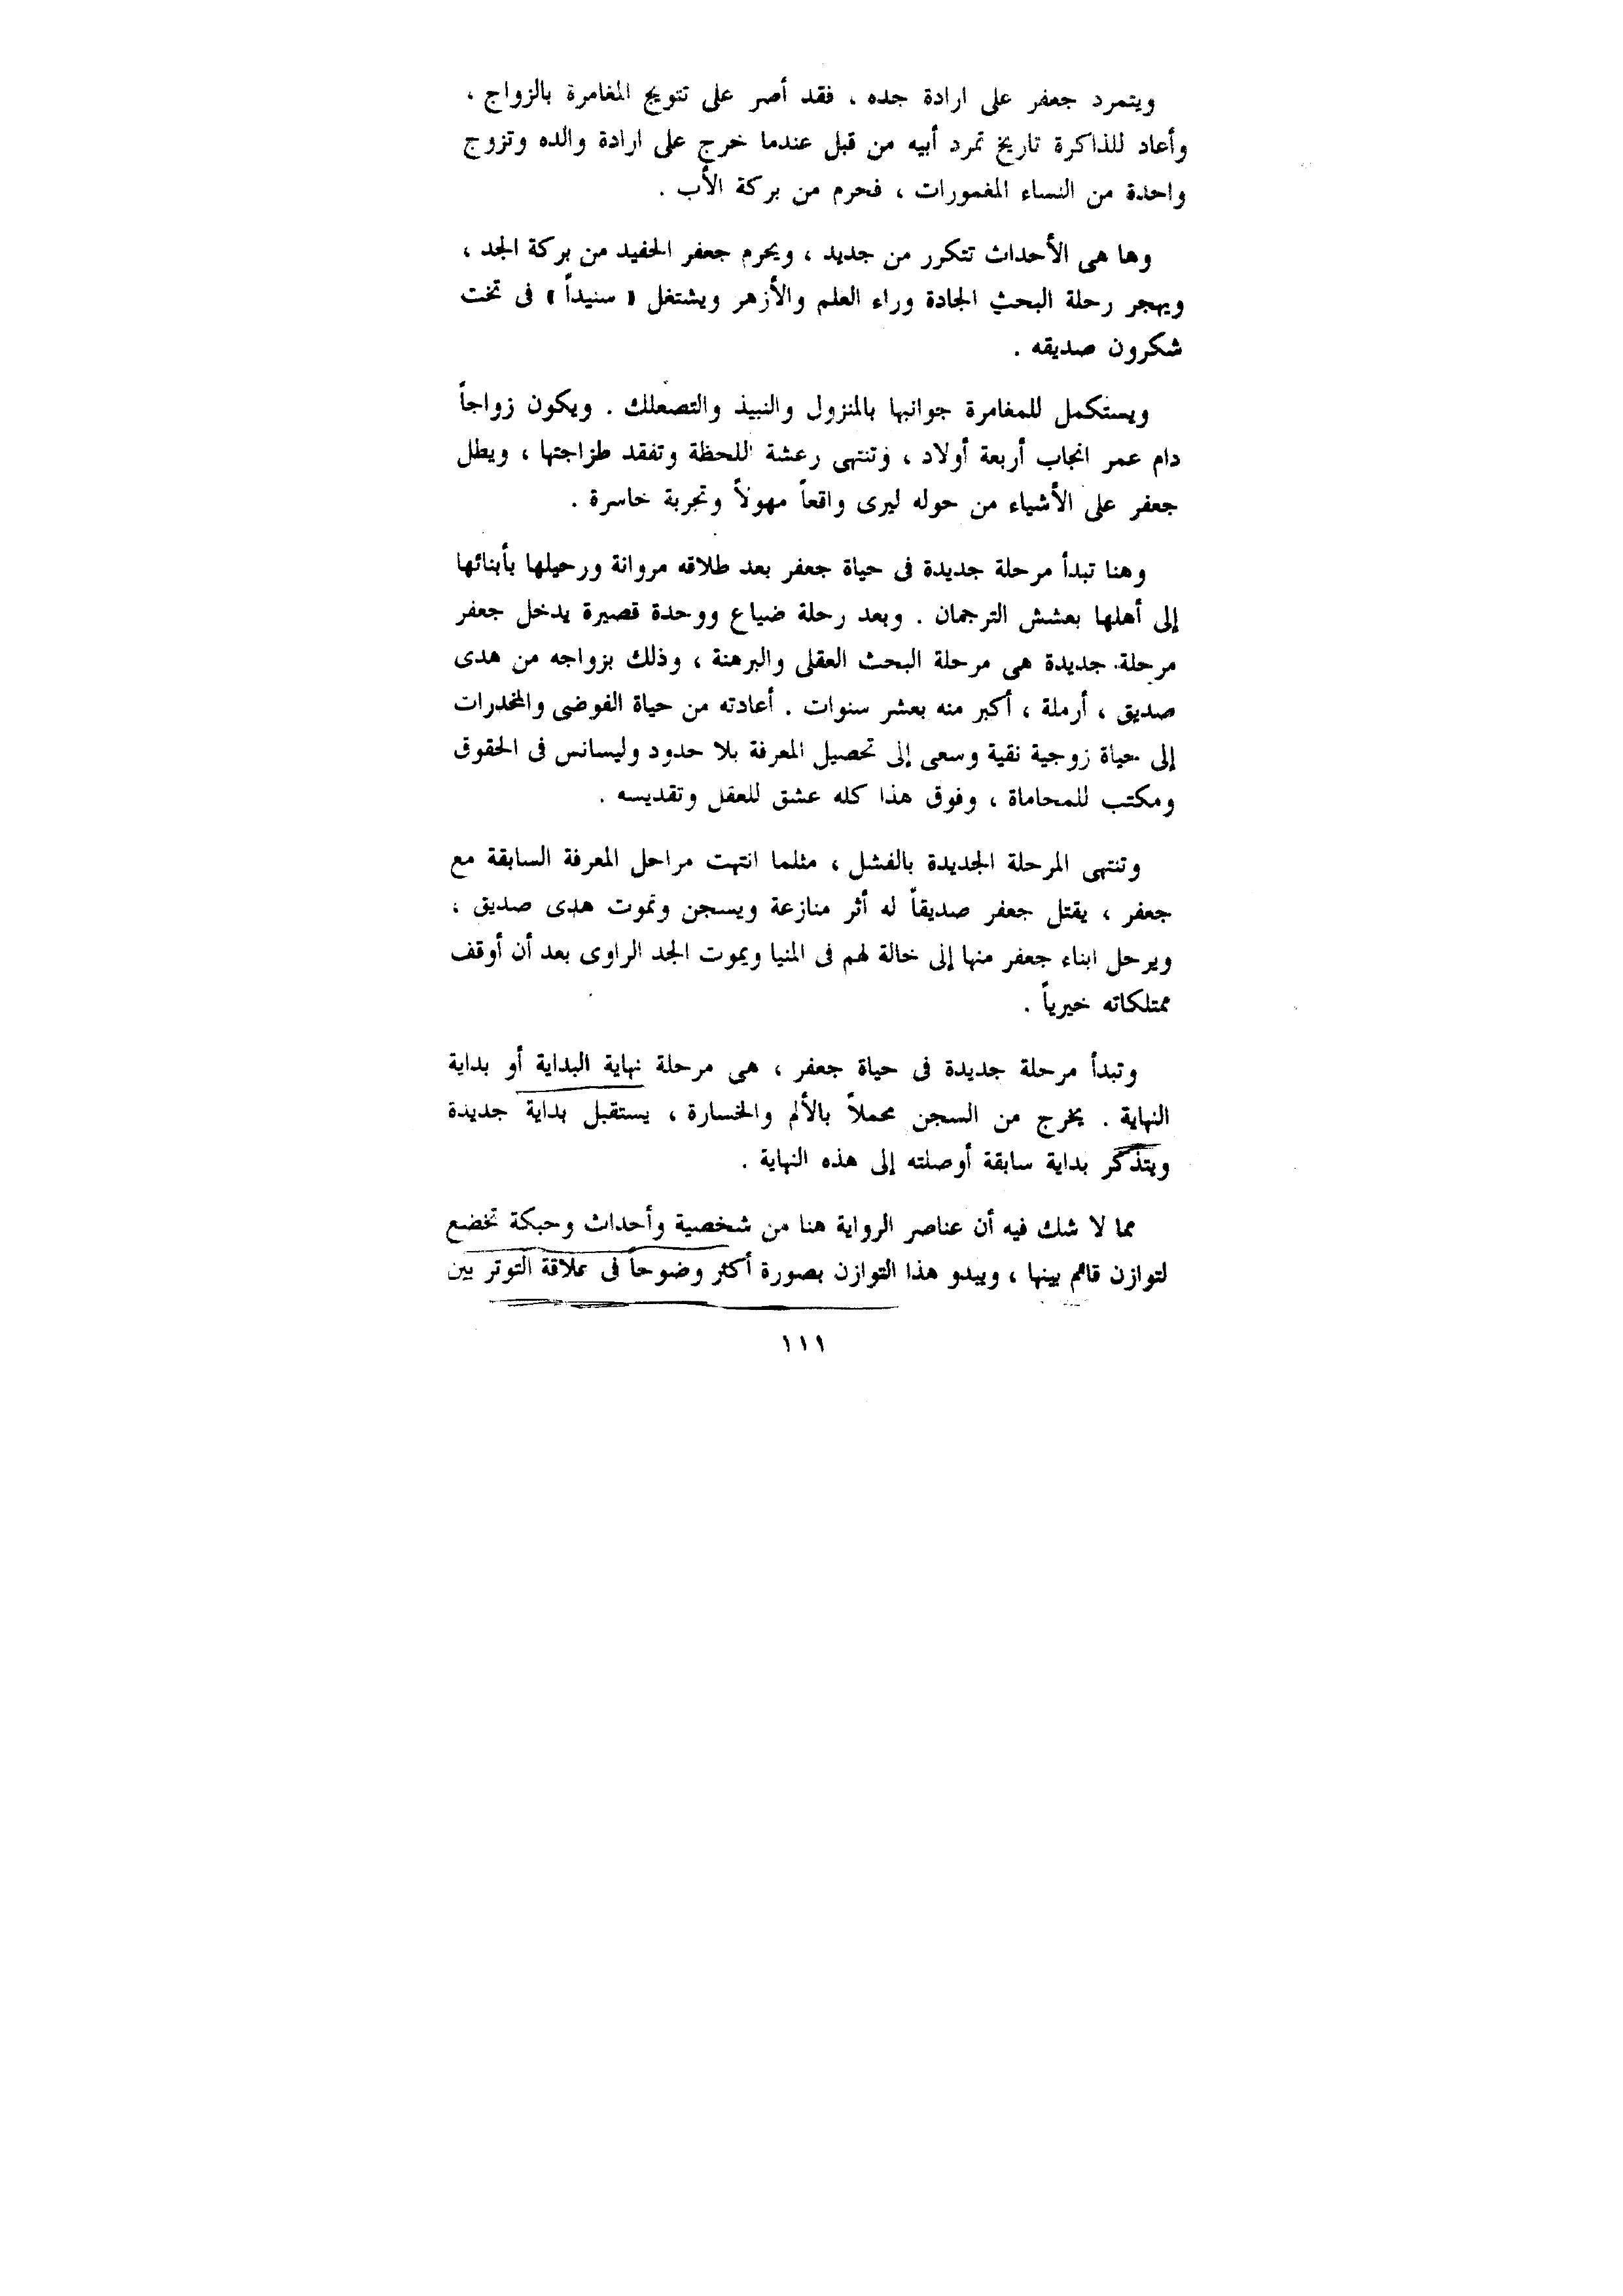 ويتمرد جعفر على ارادة جده ، فقد أصر على تتويج المغامرة بالزواج ،
وأعاد للذاكرة تاريخ تمرد أبيه من قبل عندما خرج على ارادة والده وتزوج
واحدة من النساء المغمورات ، فحرم من بركة الأب .
وها هى الأحداث تتكرر من جديد ، ويحرم جعفر الحفيد من بركة الجد ،
ويهجر رحلة البحث الجادة وراء العلم والأزهر ويشتغل « سنيداً » فى تخت
شكرون صديقه .
ويستكمل للمغامرة جوانبها بالمنزول والنبيذ والتصعلك . ويكون زواجاً
دام عمر انجاب أربعة أولاد ، وتنتهى رعشة اللحظة وتفقد طزاجتها ، ويطل
جعفر على الأشياء من حوله ليرى واقعاً مهولاً وتجربة خاسرة .
وهنا تبدأ مرحلة جديدة فى حياة جعفر بعد طلاقه مروانة ورحيلها بأبنائها
إلى أهلها بعشش الترجمان . وبعد رحلة ضياع ووحدة قصيرة يدخل جعفر
مرحلة جديدة هى مرحلة البحث العقلى والبرهنة ، وذلك بزواجه من هدى
صديق ، أرملة ، أكبر منه بعشر سنوات . أعادته من حياة الفوضى والمخدرات
إلى حياة زوجية نقية وسعى إلى تحصيل المعرفة بلا حدود وليسانس فى الحقوق
ومكتب للمحاماة ، وفوق هذا كله عشق للعقل وتقديسه .
وتنتهى المرحلة الجديدة بالفشل ، مثلما انتهت مراحل المعرفة السابقة مع
جعفر ، يقتل جعفر صديقاً له أثر منازعة ويسجن وتموت هدى صديق ،
ويرحل ابناء جعفر منها إلى خالة لهم فى المنيا ويموت الجد الراوى بعد أن أوقف
ممتلكاته خيرياً .
وتبدأ مرحلة جديدة فى حياة جعفر ، هى مرحلة نهاية البداية أو بداية
النهاية . يخرج من السجن محملاً بالألم والخسارة ، يستقبل بداية جديدة
ويتذكر بداية سابقة أوصلته إلى هذه النهاية .
مما لا شك فيه أن عناصر الرواية هنا من شخصية وأحداث وحبكة تخضع
لتوازن قائم بينها ، ويبدو هذا التوازن بصورة أكثر وضوحاً فى علاقة التوتر بين
١١١